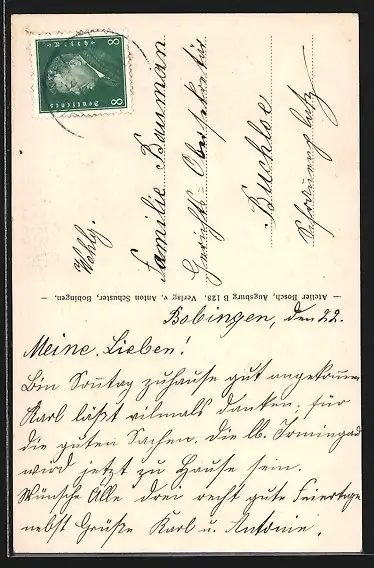 8 8
Deutsches Reich
Wohlg.
Familie Bauman
Gerichts-Obersekretär
Buchloe
— Atelier Bosch, Augsburg B 128. Verlag v. Anton Schuster, Bobingen. —
Bobingen, den 22.
Meine Lieben!
Bin Sonntag zuhause gut angekommen
Karl läßt vilmals danken, für
die guten Sachen. die lb. Irmingad
wird jetzt zu Hause sein.
Wünsche Alle drei recht gute Feiertage
nebst Grüße Karl u. Antonie.